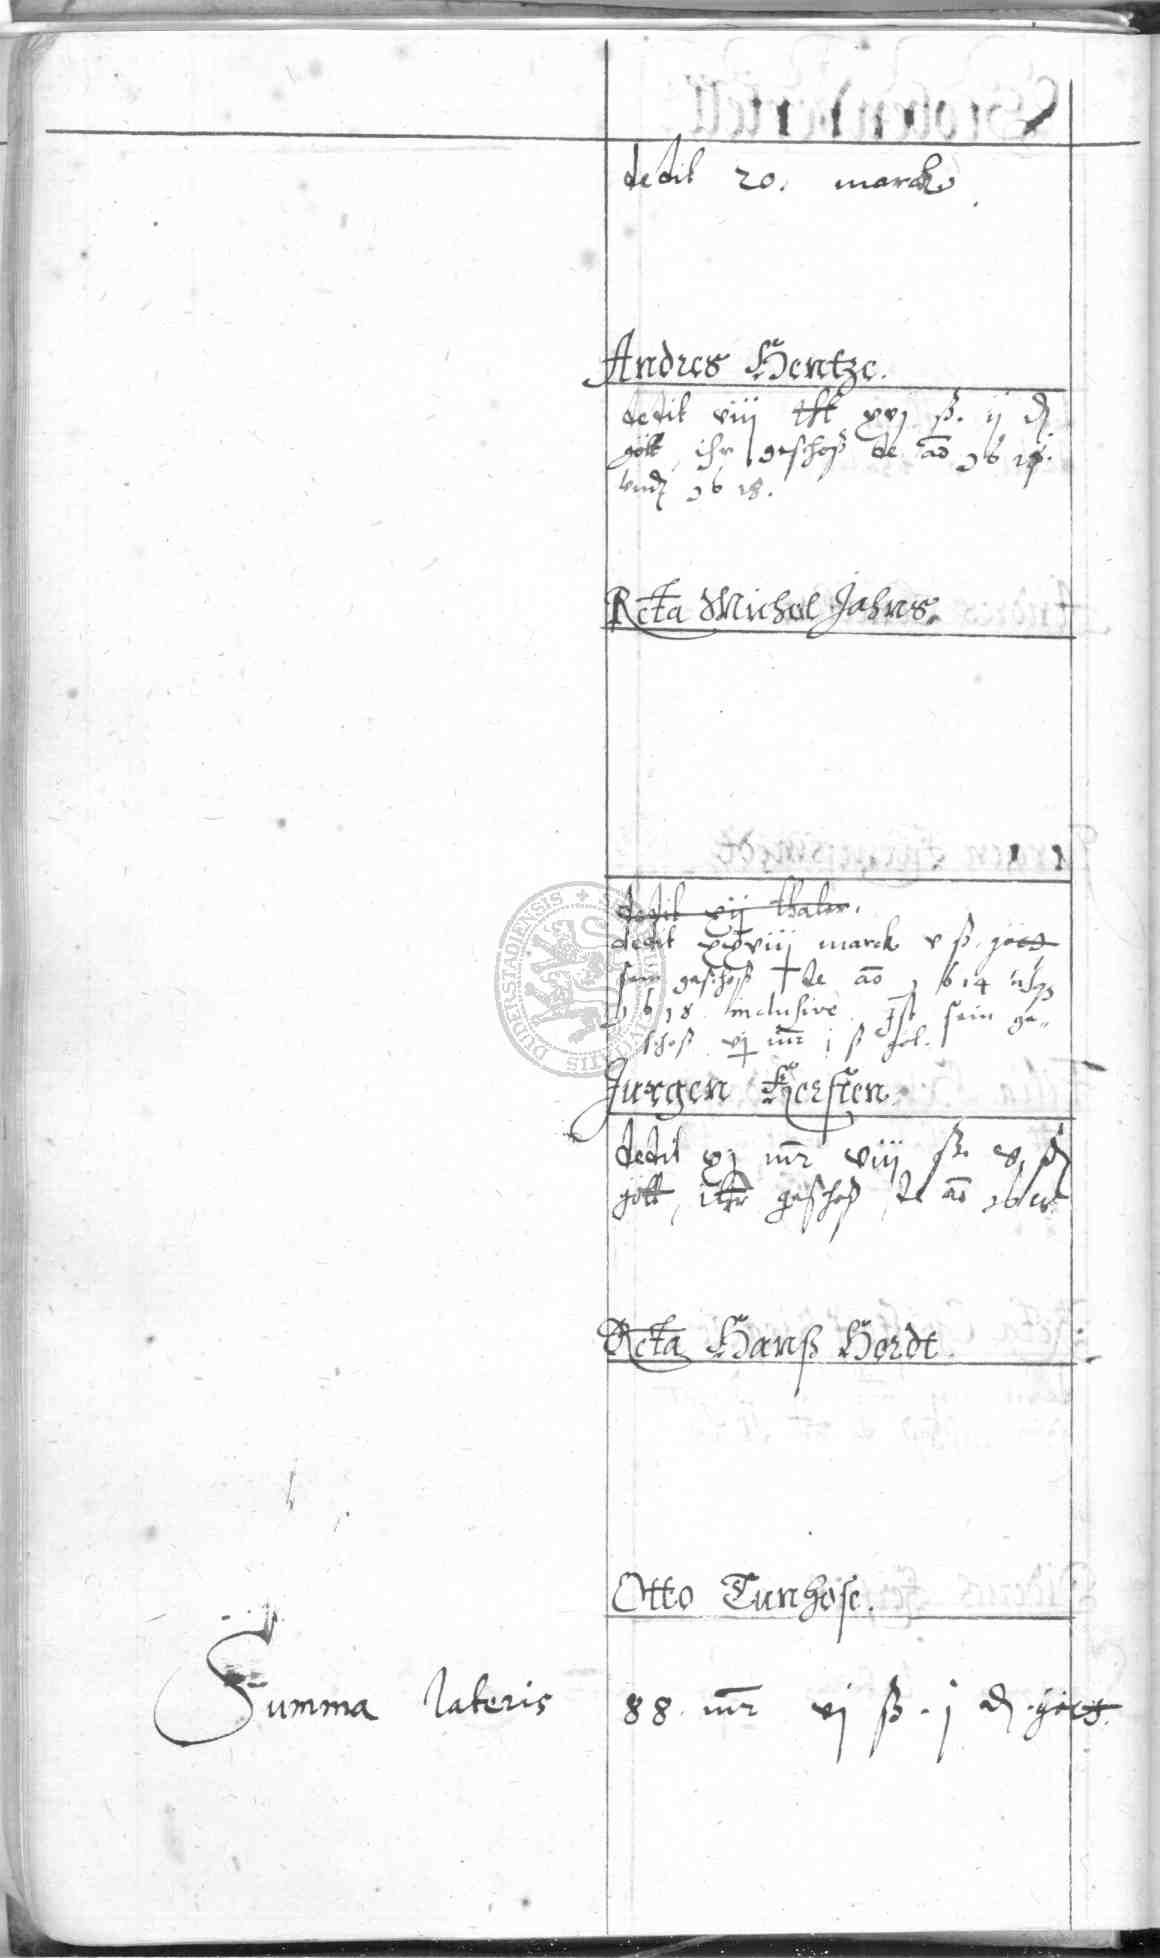 dedit 20. marck
Andres Hentze.
dedit viij xvj ß. ij ₰
gött, ihr geschoß de ao
vnd 1618.
Rcta Michel Jahns.
dedit xij thaler.
dedit xxviij marck v ß. gött
sein geschoß de ao 1614
1618 inclusive. Ist sein ge-
schoß vj mr j ß göt.
Jurgen Kersten.
dedit xj mr viij ß. ₰
gött, ihr geschoß de ao
Rcta Hanß Hordt.
Otto Tunhose.
Summa lateris 88. mr vj ß. j ₰. gött.